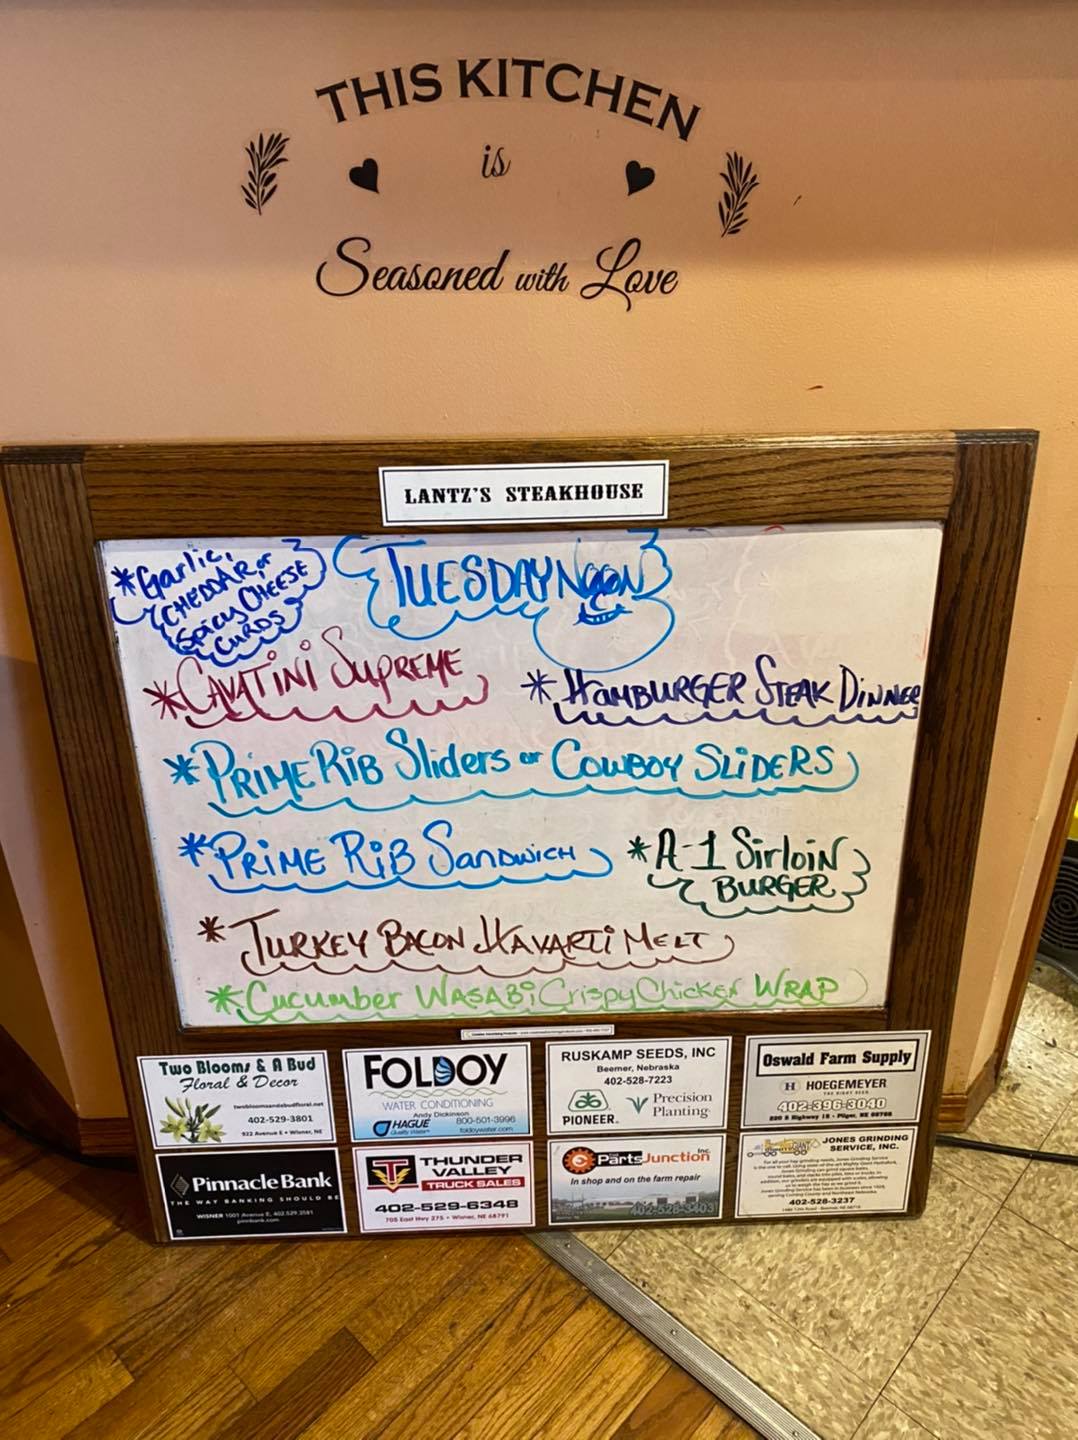 THIS KITCHEN
is
Seasoned with Love
LANTZ'S STEAKHOUSE
*Garlic,
CHEDDAR, or
Spicy CHEESE
CURDS
TUESDAY NOON
*CAVATINI SUPREME
*HAMBURGER STEAK DINNER
*PRIME RIB Sliders or COWBOY SLIDERS
*PRIME RIB SANDWICH
*A-1 Sirloin
BURGER
*TURKEY BACON HAVARTI MELT
*Cucumber WASABI Crispy Chicken WRAP
Two Blooms & A Bud
Floral & Decor
twobloomsandabudfloral.net
402-529-3801
922 Avenue E • Wisner, NE
FOLDOY
WATER CONDITIONING
Andy Dickinson
HAGUE
Quality Water
800-501-3996
foldoywater.com
RUSKAMP SEEDS, INC
Beemer, Nebraska
402-528-7223
PIONEER.
Precision
Planting
Oswald Farm Supply
H HOEGEMEYER
THE RIGHT SEED
402-396-3040
Pilger, NE 68768
Pinnacle Bank
THE WAY BANKING SHOULD BE
WISNER 1001 Avenue E, 402.529.3581
pinnbank.com
THUNDER
VALLEY
TRUCK SALES
402-529-6348
705 East Hwy 275 • Wisner, NE 68791
Parts Junction Inc.
In shop and on the farm repair
402-528-3403
JONES GRINDING
SERVICE, INC.
402-528-3237